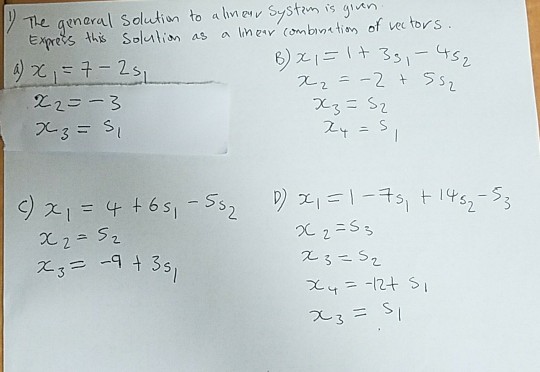 1) The general solution to a linear system is given.
Express this solution as a linear combination of vectors.
a) x₁ = 7 - 2s₁
x₂ = -3
x₃ = s₁
B) x₁ = 1 + 3s₁ - 4s₂
x₂ = -2 + 5s₂
x₃ = s₂
x₄ = s₁
C) x₁ = 4 + 6s₁ - 5s₂
x₂ = s₂
x₃ = -9 + 3s₁
D) x₁ = 1 - 7s₁ + 14s₂ - s₃
x₂ = s₃
x₃ = s₂
x₄ = -12 + s₁
x₃ = s₁